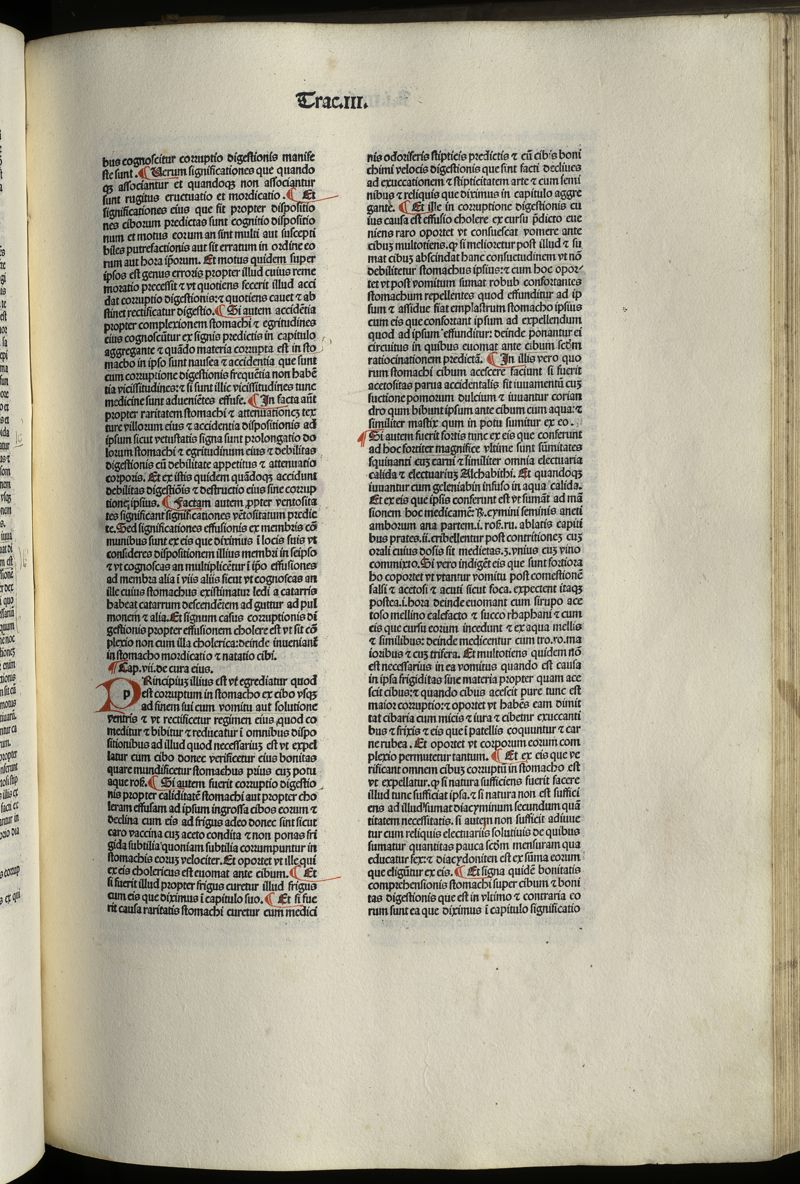 Trac.III.
bus cognoscitur corruptio digestionis manife
ste sunt. ¶ Uerum significationes que quando
qꝫ associantur et quandoqꝫ non associantur
sunt rugitus eructuatio et mordicatio. ¶ Et
significationes eius que fit propter dispositio
nes ciborum predictas sunt cognitio dispositio
num et motus eorum an sint multi aut suscepti
biles putrefactionis aut sit erratum in ordine eo
rum aut hora ip̄orum. Et motus quidem super
ipsos est genus erroris propter illud cuius reme
moratio precessit ⁊ vt quotiens fecerit illud acci
dat corruptio digestionis: ⁊ quotiens cauet ⁊ ab
stinet rectificatur digestio. ¶ Si autem accidētia
propter complexionem stomachi ⁊ egritudines
eius cognoscūtur ex signis predictis in capitulo
aggregante ⁊ quādo materia corrupta est in sto
macho in ipso sunt nausea ⁊ accidentia que sunt
cum corruptione digestionis frequētia non habē
tia vicissitudines: ⁊ si sunt illic vicissitudines tunc
medicine sunt adueniētes effuse. ¶ In facta aūt
propter raritatem stomachi ⁊ attenuationeꝫ tex
ture villorum eius ⁊ accidentia dispositionis ad
ipsum sicut vetustatis signa sunt prolongatio do
lorum stomachi ⁊ egritudinum eius ⁊ debilitas
digestionis cū debilitate appetitus ⁊ attenuatio
corporis. Et ex istis quidem quādoqꝫ accidunt
debilitas digestiōis ⁊ destructio eius sine corrup
tione ipsius. ¶ Factam autem ꝓpter ventosita
tes significant significationes vētositatum predic
te. Sed significationes effusionis ex membris cō
munibus sunt ex eis que diximus ī locis suis vt
consideres dispositionem illius membri in seipso
⁊ vt cognoscas an multiplicētur ī ip̄o effusiones
ad membra alia ī viis aliis sicut vt cognoscas an
ille cuius stomachus existimatur ledi a catarris
habeat catarrum descendētem ad guttur ad pul
monem ⁊ alia. Et signum casus corruptionis di
gestionis propter effusionem cholere est vt sit cō
plexio non cum illa cholerica: deinde inueniant̄
in stomacho mordicatio ⁊ natatio cibi.
¶ Cap. vii. de cura eius.
PRincipiuꝫ illius est vt egrediatur quod
est corruptum in stomacho ex cibo vsqꝫ
ad finem sui cum vomitu aut solutione
ventris ⁊ vt rectificetur regimen eius quod co
meditur ⁊ bibitur ⁊ reducatur ī omnibus dispo
sitionibus ad illud quod necessariuꝫ est vt expel
latur cum cibo donec verificetur eius bonitas
quare mundificetur stomachus prius cuꝫ potu
aque rosꝫ. ¶ Si autem fuerit corruptio digestio
nis propter caliditatē stomachi aut propter cho
leram effusam ad ipsum ingrossa cibos eorum ⁊
declina cum eis ad frigus adeo donec sint sicut
caro vaccina cuꝫ aceto condita ⁊ non ponas fri
gida subtilia quoniam subtilia corrumpuntur in
stomachis eoruꝫ velociter. Et oportet vt ille qui
ex eis cholericus est euomat ante cibum. ¶ Et
si fuerit illud propter frigus curetur illud frigus
cum eis que diximus ī capitulo suo. ¶ Et si fue
rit causa raritatis stomachi curetur cum medici
nis odoriferis stipticis predictis ⁊ cū cibis boni
chimi velocis digestionis que sint facti decliues
ad exuccationem ⁊ stipticitatem arte ⁊ cum semi
nibus ⁊ reliquis que diximus in capitulo aggre
gante. ¶ Et ille in corruptione digestionis cu
ius causa est effusio cholere ex cursu p̄dicto eue
niens raro oportet vt consuescat vomere ante
cibuꝫ multotiens. ꝙ si melioretur post illud ⁊ su
mat cibuꝫ abscindat hanc consuetudinem vt nō
debilitetur stomachus ipsius: ⁊ cum hoc opor-
tet vt post vomitum sumat robub confortantes
stomachum repellentes quod effunditur ad ip
sum ⁊ assidue fiat emplastrum stomacho ipsius
cum eis que confortant ipsum ad expellendum
quod ad ipsum effunditur: deinde ponantur ei
circuitus in quibus euomat ante cibum scd̄m
ratiocinationem predictā. ¶ In illis vero quo
rum stomachi cibum acescere faciunt si fuerit
acetositas parua accidentalis fit iuuamentū cuꝫ
suctione pomorum dulcium ⁊ iuuantur corian
dro qum bibunt ipsum ante cibum cum aqua: ⁊
similiter mastix qum in potu sumitur ex eo.
¶ Si autem fuerit fortis tunc ex eis que conferunt
ad hoc fortiter magnifice vltime sunt sūmitates
squinanti cuꝫ carui ⁊ similiter omnia electuaria
calida ⁊ electuariuꝫ Alchabithi. Et quandoqꝫ
iuuantur cum geleniabin infuso in aqua calida.
Et ex eis que ipsis conferunt est vt sumāt ad mā
sionem hoc medicamē: ℞. cymini seminis aneti
amborum ana partem. i. ros. ru. ablatis capiti
bus prates. ii. cribellentur post contritioneꝫ cuꝫ
orali cuius dosis sit medietas. ʒ. vnius cuꝫ vino
commixto. Si vero indigēt eis que sunt fortiora
ho coportet vt vtantur vomitu post comestionē
salsi ⁊ acetosi ⁊ acuti sicut foca. expectent itaqꝫ
postea. i. hora deinde euomant cum sirupo ace
toso mellino calefacto ⁊ succo rhaphani ⁊ cum
eis que cursu eorum incedunt ⁊ ex aqua mellis
⁊ similibus: deinde medicentur cum tro. ro. ma
ioribus ⁊ cuꝫ trifera. Et multotiens quidem nō
est necessarius in ea vomitus quando est causa
in ipsa frigiditas sine materia propter quam ace
scit cibus: ⁊ quando cibus acescit pure tunc est
maior corruptio: ⁊ oportet vt habēs eam dimit
tat cibaria cum micis ⁊ iura ⁊ cibetur exuccanti
bus ⁊ frixis ⁊ eis que ī patellis coquuntur ⁊ car
ne rubea. Et oportet vt corporum eorum com
plexio permutetur tantum. ¶ Et ex eis que ve
rificant omnem cibuꝫ corruptū in stomacho est
vt expellatur. ꝙ si natura sufficiens fuerit facere
illud tunc sufficiat ipsa. ⁊ si natura non est suffici
ens ad illud sumat diacyminum secundum quā
titatem necessitatis. si autem non sufficit adiuue
tur cum reliquis electuariis solutiuis de quibus
sumatur quantitas pauca scd̄m mensuram qua
educatur fex: ⁊ diacydoniten est ex sūma eorum
que eligūtur ex eis. ¶ Et signa quidē bonitatis
comprehensionis stomachi super cibum ⁊ boni
tas digestionis que est in vltimo ⁊ contraria eo
rum sunt ea que diximus ī capitulo significatio